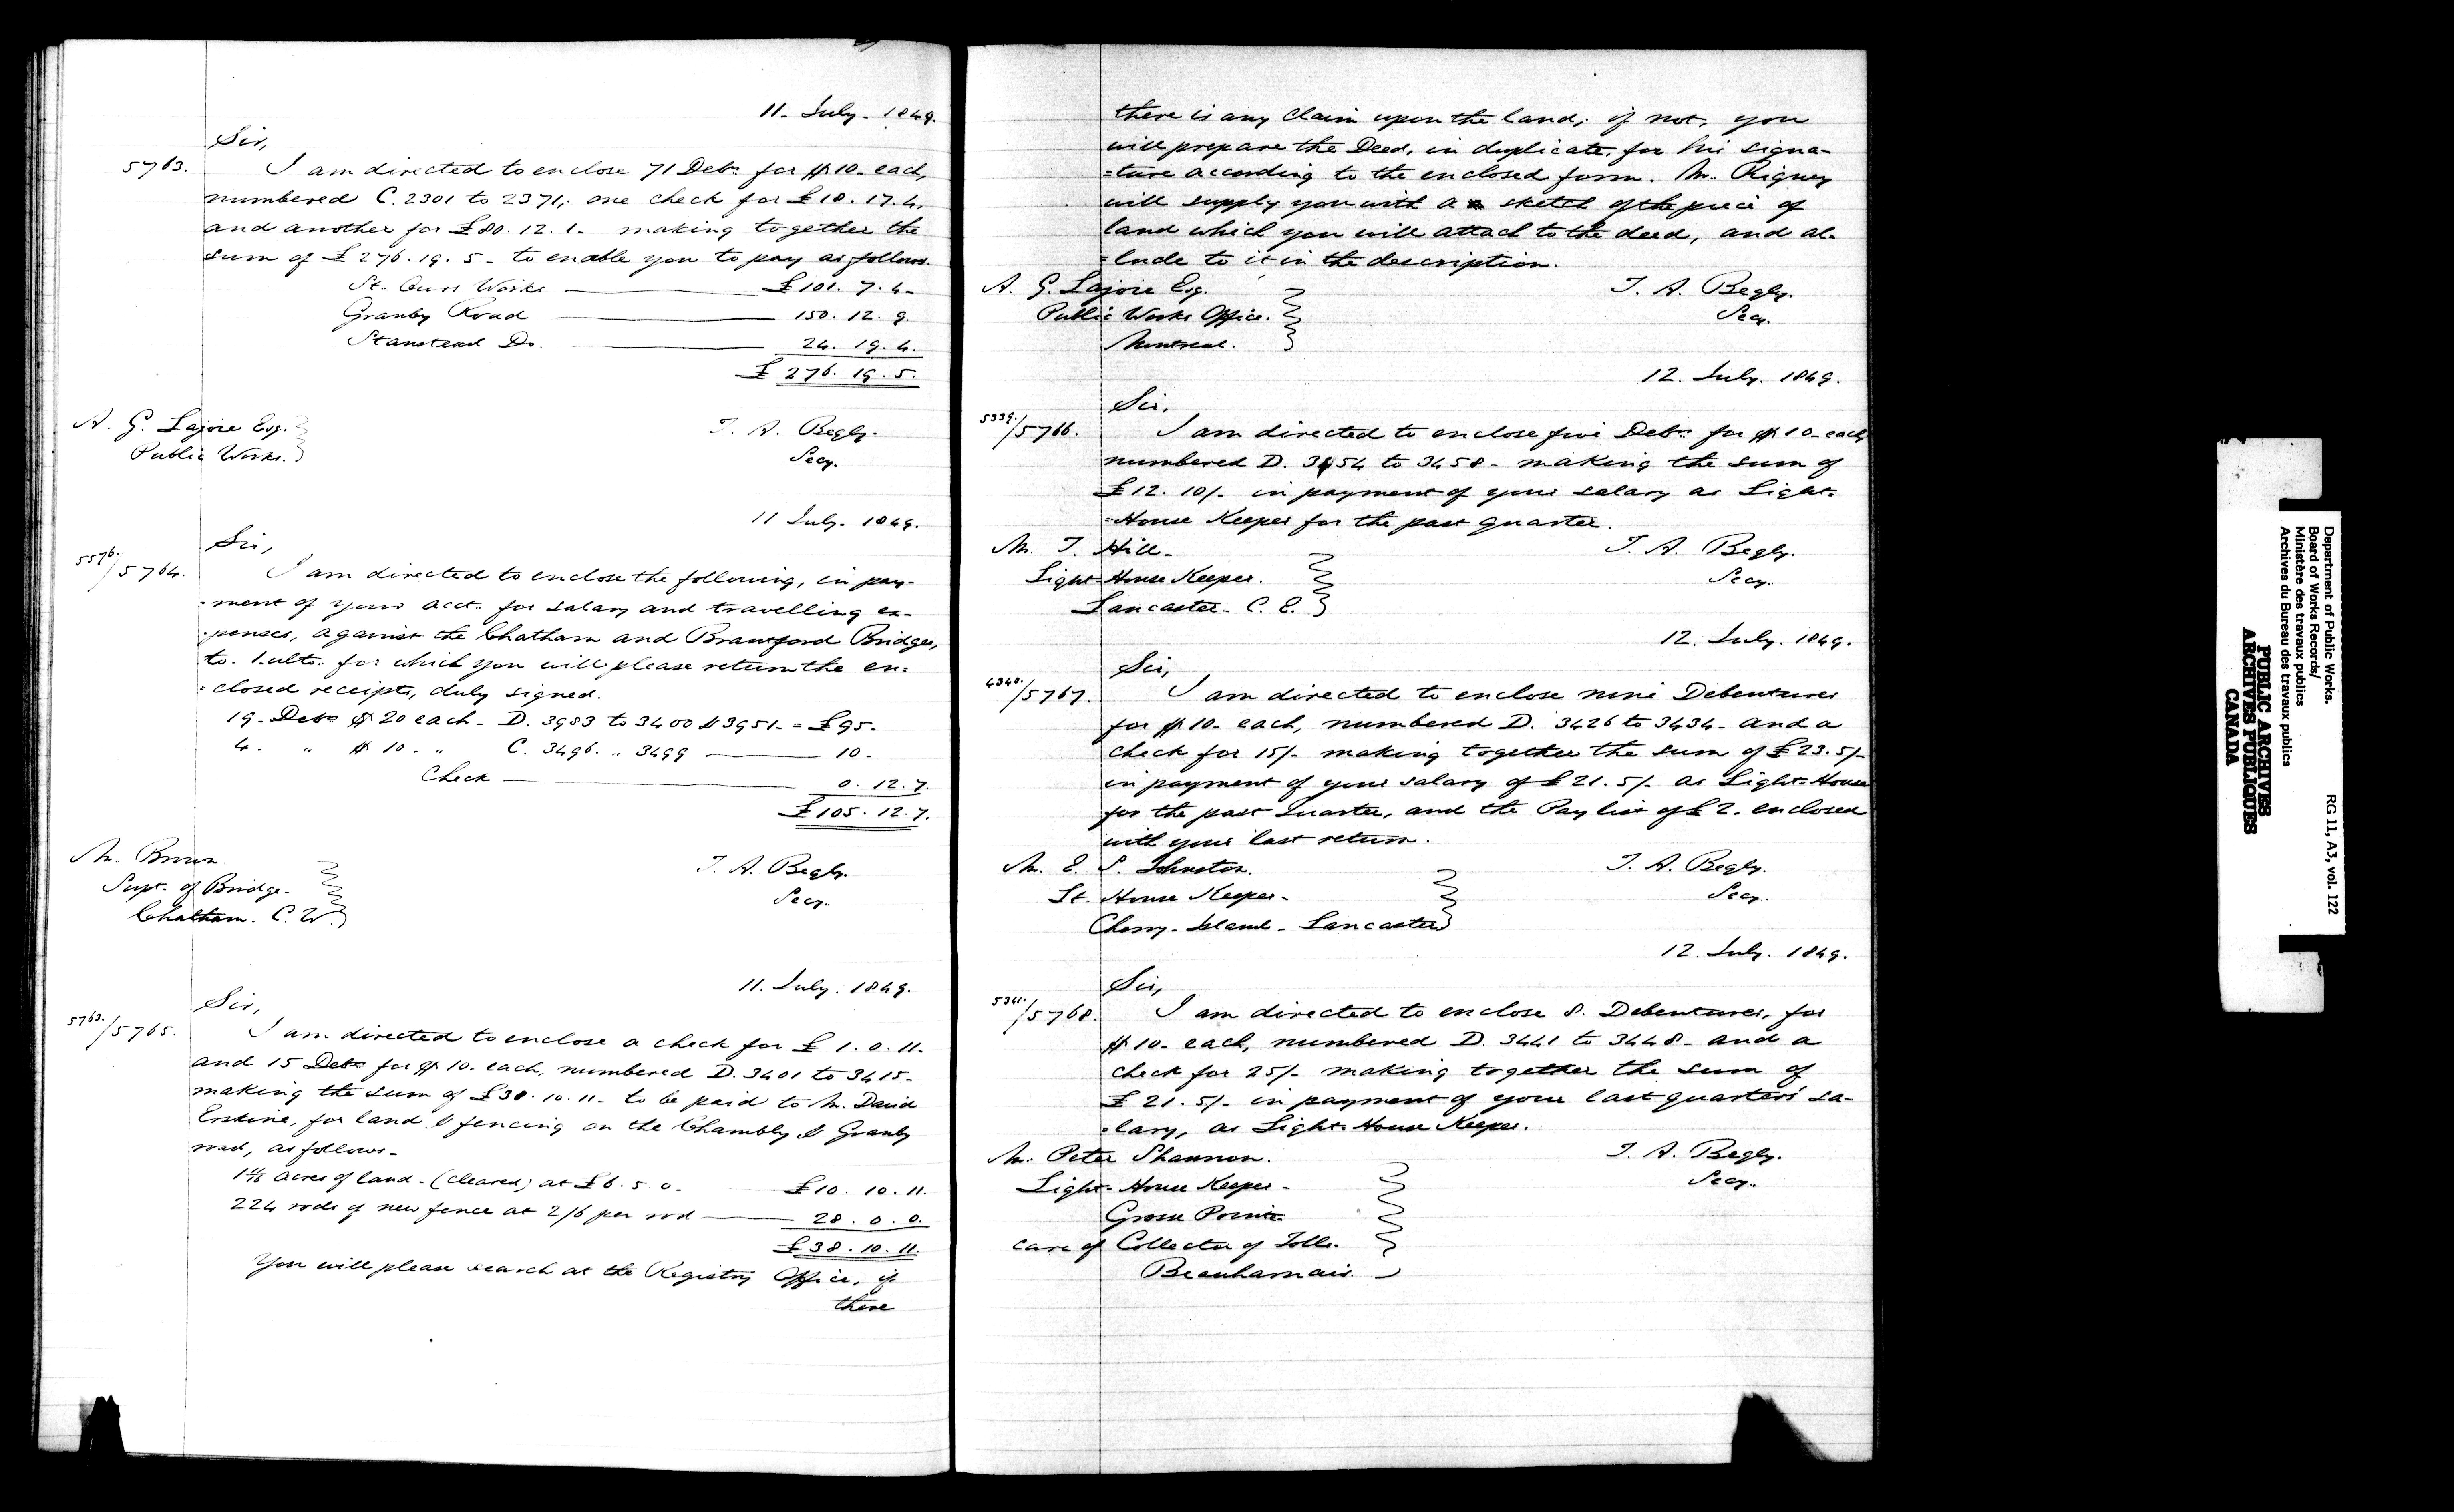 11. July. 1849.
Sir,
5763. I am directed to enclose 71 Debs. for $10. each,
numbered C. 2301 to 2371; one check for £18. 17. 4.
and another for £80. 12. 1. making together the
sum of £276. 19. 5. to enable you to pay as follows.
St. Ours Works £101. 7. 4.
Granby Road 150. 12. 9.
Stanstead Do. 24. 19. 4.
£276. 19. 5.
A. G. Lajoie Esq.
Public Works.
T. A. Begly.
Secy.
11 July. 1849.
Sir,
5576./5764. I am directed to enclose the following, in pay-
-ment of your acct. for salary and travelling ex-
-penses, against the Chatham and Brantford Bridges,
to 1. ulto. for which you will please return the en=
=closed receipts, duly signed.
19. Debs. $20 each. D. 3983 to 3400 & 3951. = £95.
4. " $10. " C. 3496. " 3499 10.
Check 0. 12. 7.
£105. 12. 7.
Mr. Brown.
Supt. of Bridge.
Chatham. C. W.
T. A. Begly.
Secy.
11. July. 1849.
Sir,
5763./5765. I am directed to enclose a check for £1. 0. 11.
and 15 Debs. for $10. each, numbered D. 3401 to 3415.
making the sum of £38. 10. 11. to be paid to Mr. David
Erskine, for land & fencing on the Chambly & Granby
road, as follows.
1 acres of land. (cleared) at £6. 5. 0. £10. 10. 11.
224 rods of new fence at 2/6 per rod 28. 0. 0.
£38. 10. 11.
You will please search at the Registry Office, if
there
there is any claim upon the land; if not, you
will prepare the Deed, in duplicate, for his signa-
=ture according to the enclosed form. Mr. Rigney
will supply you with a sketch of the piece of
land which you will attach to the deed, and al-
=lude to it in the description.
A. G. Lajoie Esq.
Public Works Office.
Montreal.
T. A. Begly.
Secy.
12. July. 1849.
Sir,
5339./5766. I am directed to enclose five Debs. for $10. each,
numbered D. 3454 to 3458. making the sum of
£12. 10/- in payment of your salary as Light=
=House Keeper for the past quarter.
Mr. T. Hill.
Light-House Keeper.
Lancaster. C. E.
T. A. Begly.
Secy.
12. July. 1849.
Sir,
4340./5767. I am directed to enclose nine Debentures
for $10. each, numbered D. 3426 to 3434. and a
check for 15/- making together the sum of £23. 5/-
in payment of your salary of £21. 5/- as Light-House
for the past Quarter, and the Pay list of £2. enclosed
with your last return.
Mr. E. S. Johnston.
Lt. House Keeper.
Cherry-Island. Lancaster
T. A. Begly.
Secy.
12. July. 1849.
Sir,
5341./5768. I am directed to enclose 8. Debentures, for
$10. each, numbered D. 3441 to 3448. and a
check for 25/- making together the sum of
£21. 5/- in payment of your last quarter's sa-
=lary, as Light-House Keeper.
Mr. Peter Shannon.
Light-House Keeper.
Grosse Pointe.
care of Collector of Tolls.
Beauharnais.
T. A. Begly.
Secy.
Department of Public Works.
Board of Works Records/
Ministère des travaux publics
Archives du Bureau des travaux publics
RG 11, A3, vol. 122
PUBLIC ARCHIVES
ARCHIVES PUBLIQUES
CANADA